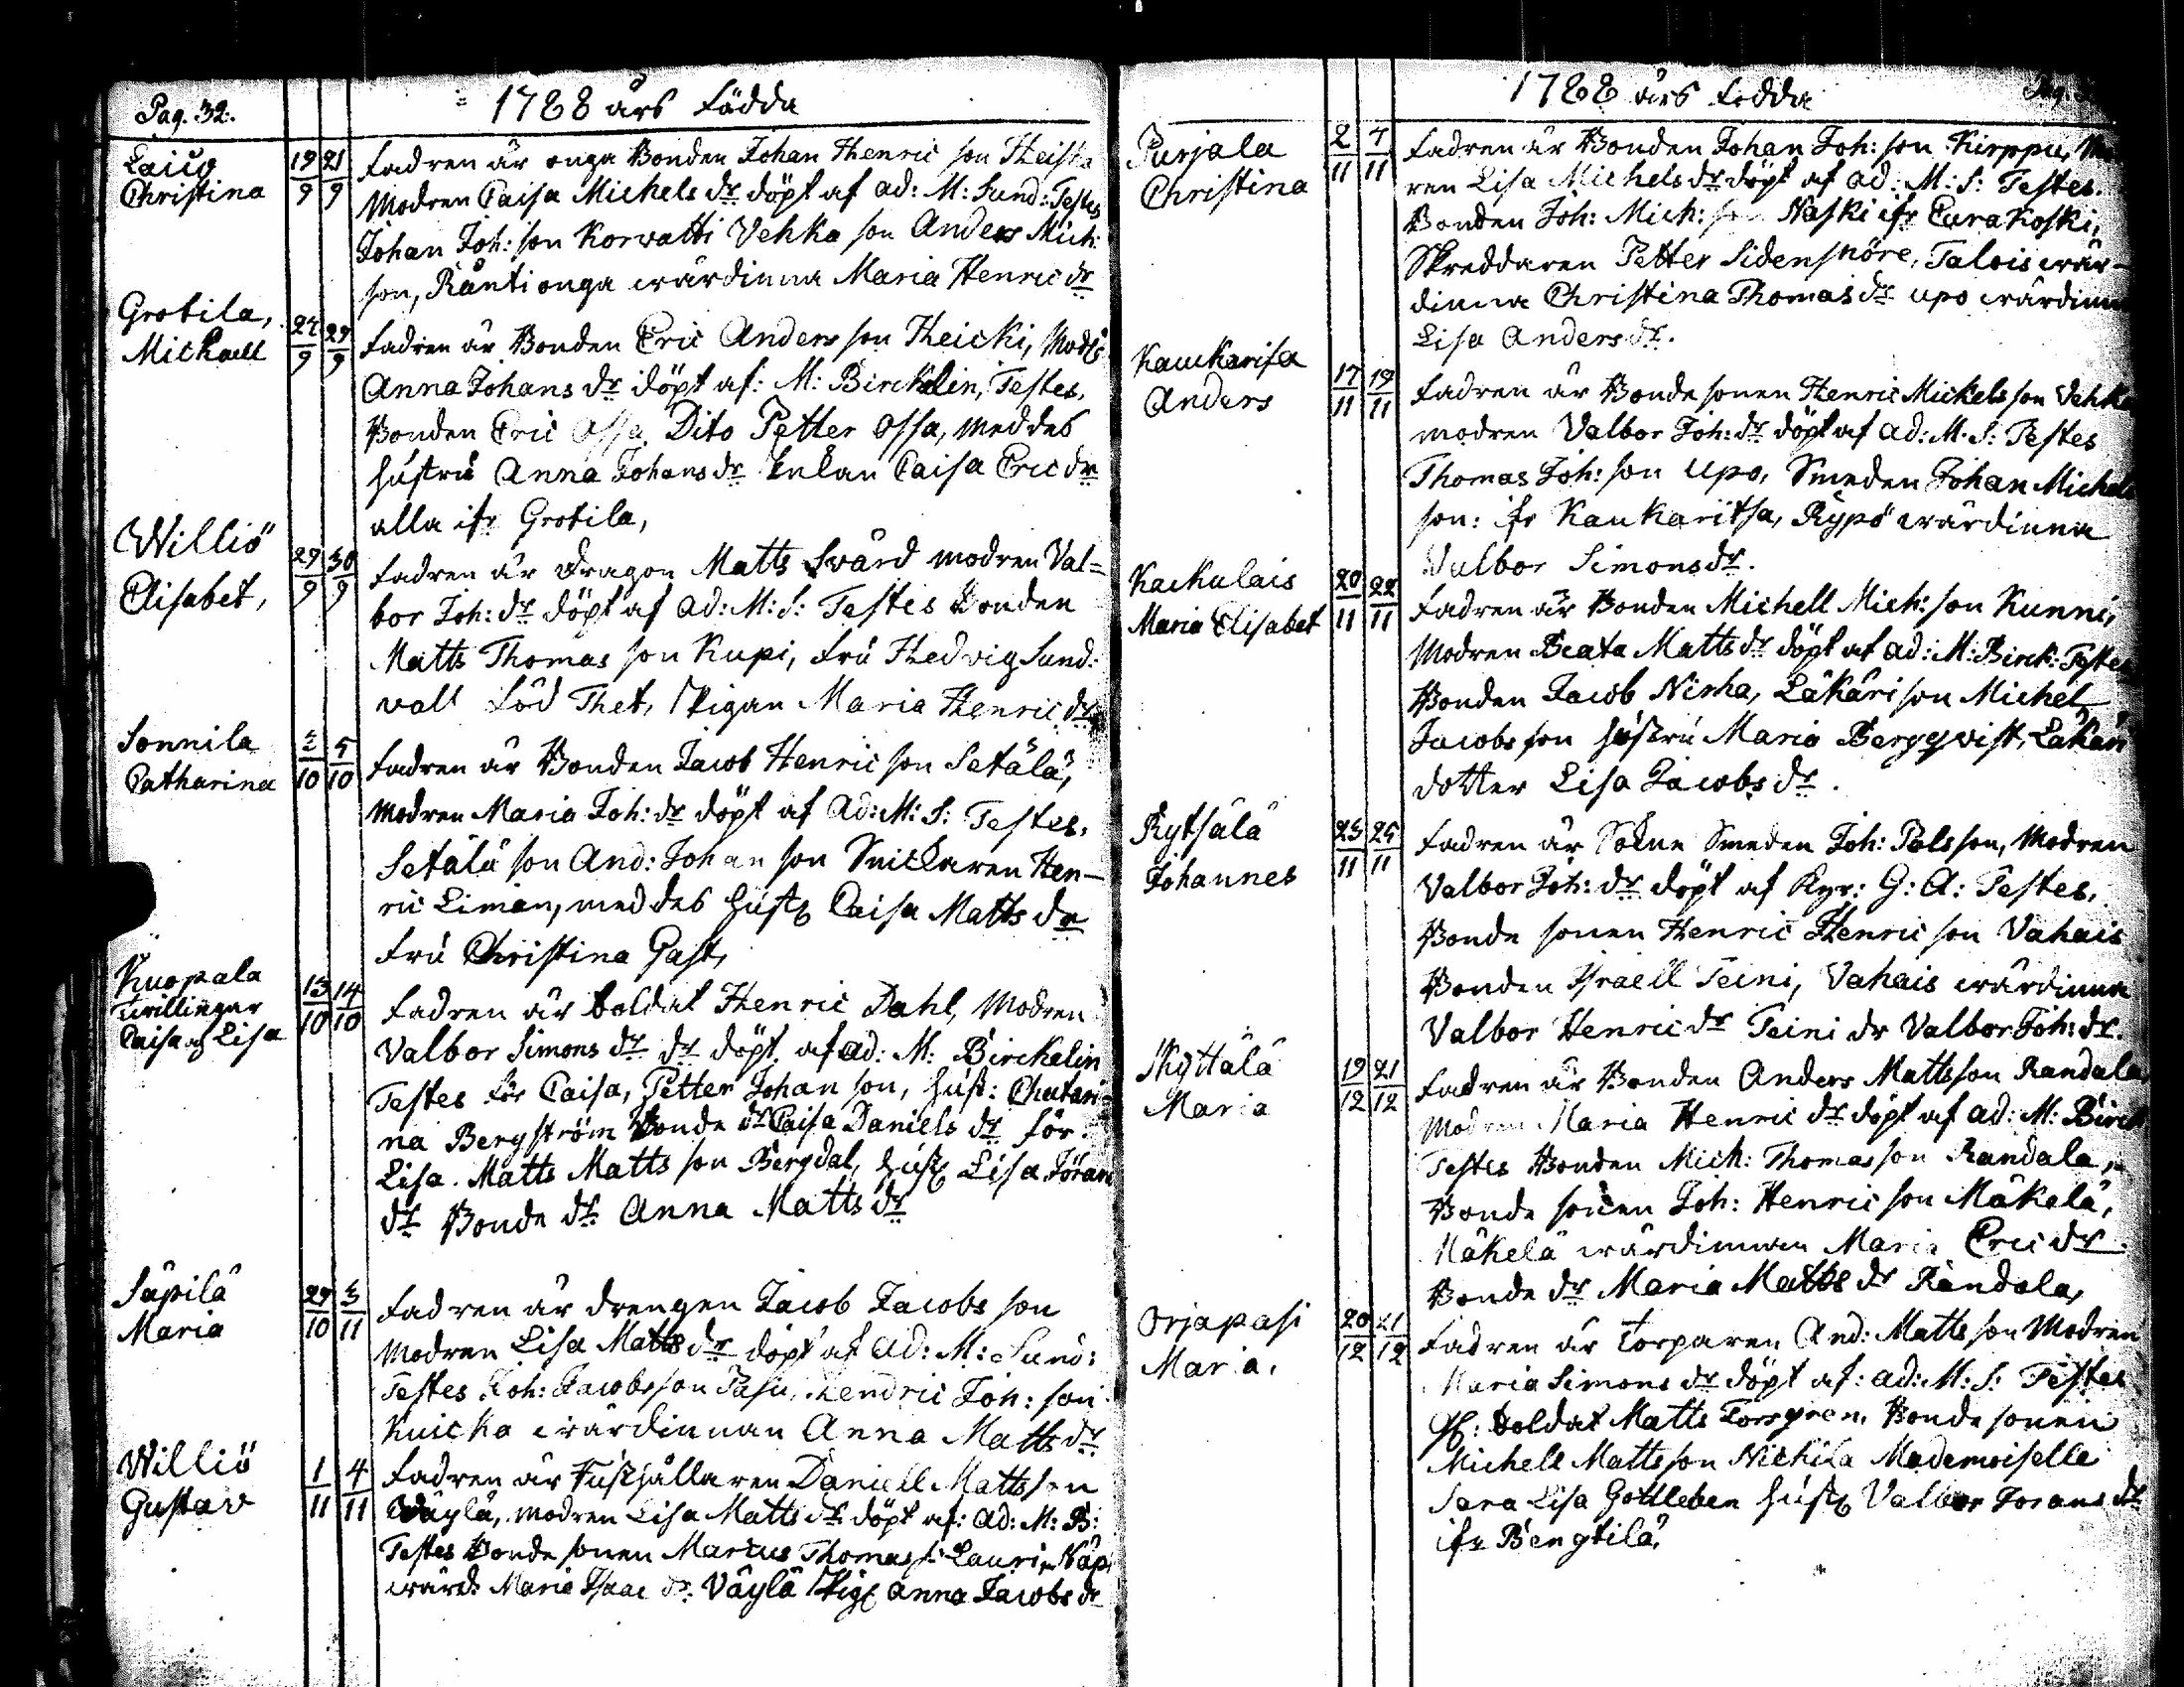 Pag. 32.
1788 års Födda
Laiu
Christina
19/9 21/9
Fadren är onga Bonden Johan Henric son Heista
Modren Caisa Michels dr döpt af ad: M: Sund: Testes
Johan Joh: son Korvatti Vehka son Anders Mich:
son, Räntionga wärdinna Maria Henric dr
Grotila,
Michaell
27/9 29/9
Fadren är Bonden Eric Anders son Heicki, Modr:
Anna Johans dr döpt af: M: Birckelin, Testes,
Bonden Eric Ossa, Dito Petter Ossa, med des
hustru Anna Johans dr Enkan Caisa Eric dr
alla ifr Grotila,
Williö
Elisabet,
29/9 30/9
Fadren är Dragon Matts Svärd modren Val=
bor Joh: dr döpt af ad: M: S: Testes Bonden
Matts Thomas son Kupi, Fru Hedvig Sund:
vall Föd Thet, Pigan Maria Henric dr
Sonnila
Catharina
3/10 5/10
Fadren är Bonden Jacob Henric son Setälä,
Modren Maria Joh: dr döpt af Ad: M: S: Testes,
Setälä son And: Johan son Snickaren Hen-
ric Liman, med des hust Caisa Matts dr
Fru Christina Gast,
Kuopala
twillingar
Caisa och Lisa
13/10 14/10
Fadren är Soldat Henric Dahl, Modren
Valbor Simons dr dr döpt af ad: M: Birckelin
Testes för Caisa, Petter Johan son, hust: Chatari-
na Bergström Bonde dr Caisa Daniels dr för
Lisa. Matts Matts son Bergdal, hust Lisa Jöran
dr Bonde dr Anna Matts dr
Säpilä
Maria
29/10 3/11
Fadren är drengen Jacob Jacobs son
Modren Lisa Matts dr döpt af ad: M: Sund:
Testes Joh: Jacobs son Pasu, Hendric Joh: son
Knicka wärdinnan Anna Matts dr
Williö
Gustav
1/11 4/11
Fadren är Rusthållaren Daniell Matts son
Wäylä, modren Lisa Matts dr döpt af: ad: M: B:
Testes Bonde sonen Marcus Thomas s: Lauri, Näpi
wärd: Maria Isaac dr Väylä Pig Anna Jacobs dr
1788 års Fodda
Pag.
Purjala
Christina
2/11 4/11
Fadren är Bonden Johan Joh: son Kirppu, Mo
ren Lisa Michels dr döpt af ad: M: S: Testes.
Bonden Joh: Mich: son Naski ifr Eurakoski,
Skreddaren Petter Sidensnöre, Talois wär-
dinna Christina Thomas dr upo wärdinn
Lisa Anders dr.
Kaukarisa
Anders
17/11 19/11
Fadren är Bonde sonen Henric Mickels son Vehka
modren Valbor Joh: dr döpt af ad: M: S: Testes
Thomas Joh: son Upo, Smeden Johan Michels
son: fr Kaukaritsa, Rypö wärdinna
Valbor Simons dr.
Kackulais
Maria Elisabet
20/11 22/11
Fadren är Bonden Michell Mich: son Kunni,
Modren Beata Matts dr döpt af ad: M: Birck: Testes
Bonden Jacob Nirha, Läkäri son Michel
Jacobs son hustru Maria Bergqvist, Läkäri
dotter Lisa Jacobs dr.
Rytsälä
Johannes
23/11 25/11
Fadren är Sokne Smeden Joh: Pols son, Modren
Valbor Joh: dr döpt af Kyr: G: A: Testes,
Bonde sonen Henric Henric son Vahais
Bonden Israell Teini, Vahais wärdinna
Valbor Henric dr Teini dr Valbor Joh: dr.
Skyttälä
Maria
19/12 21/12
Fadren är Bonden Anders Matts son Randala
Modren Maria Henric dr döpt af ad: M: Birck
Testes Bonden Mich: Thomas son Randala,
Bonde sonen Joh: Henric son Mäkelä,
Mäkelä wärdinnan Maria Eric dr
Bonde dr Maria Matts dr Randala,
Orjapasi
Maria.
20/12 21/12
Fadren är Torparen And: Matts son Modren
Maria Simons dr döpt af: ad: M: S: Testes
Soldat Matts Forsgren, Bonde sonen
Michell Matts son Nichila Mademoiselle
Sara Lisa Gottleben hust Valbor Jorans dr
ifr Bengtilä,